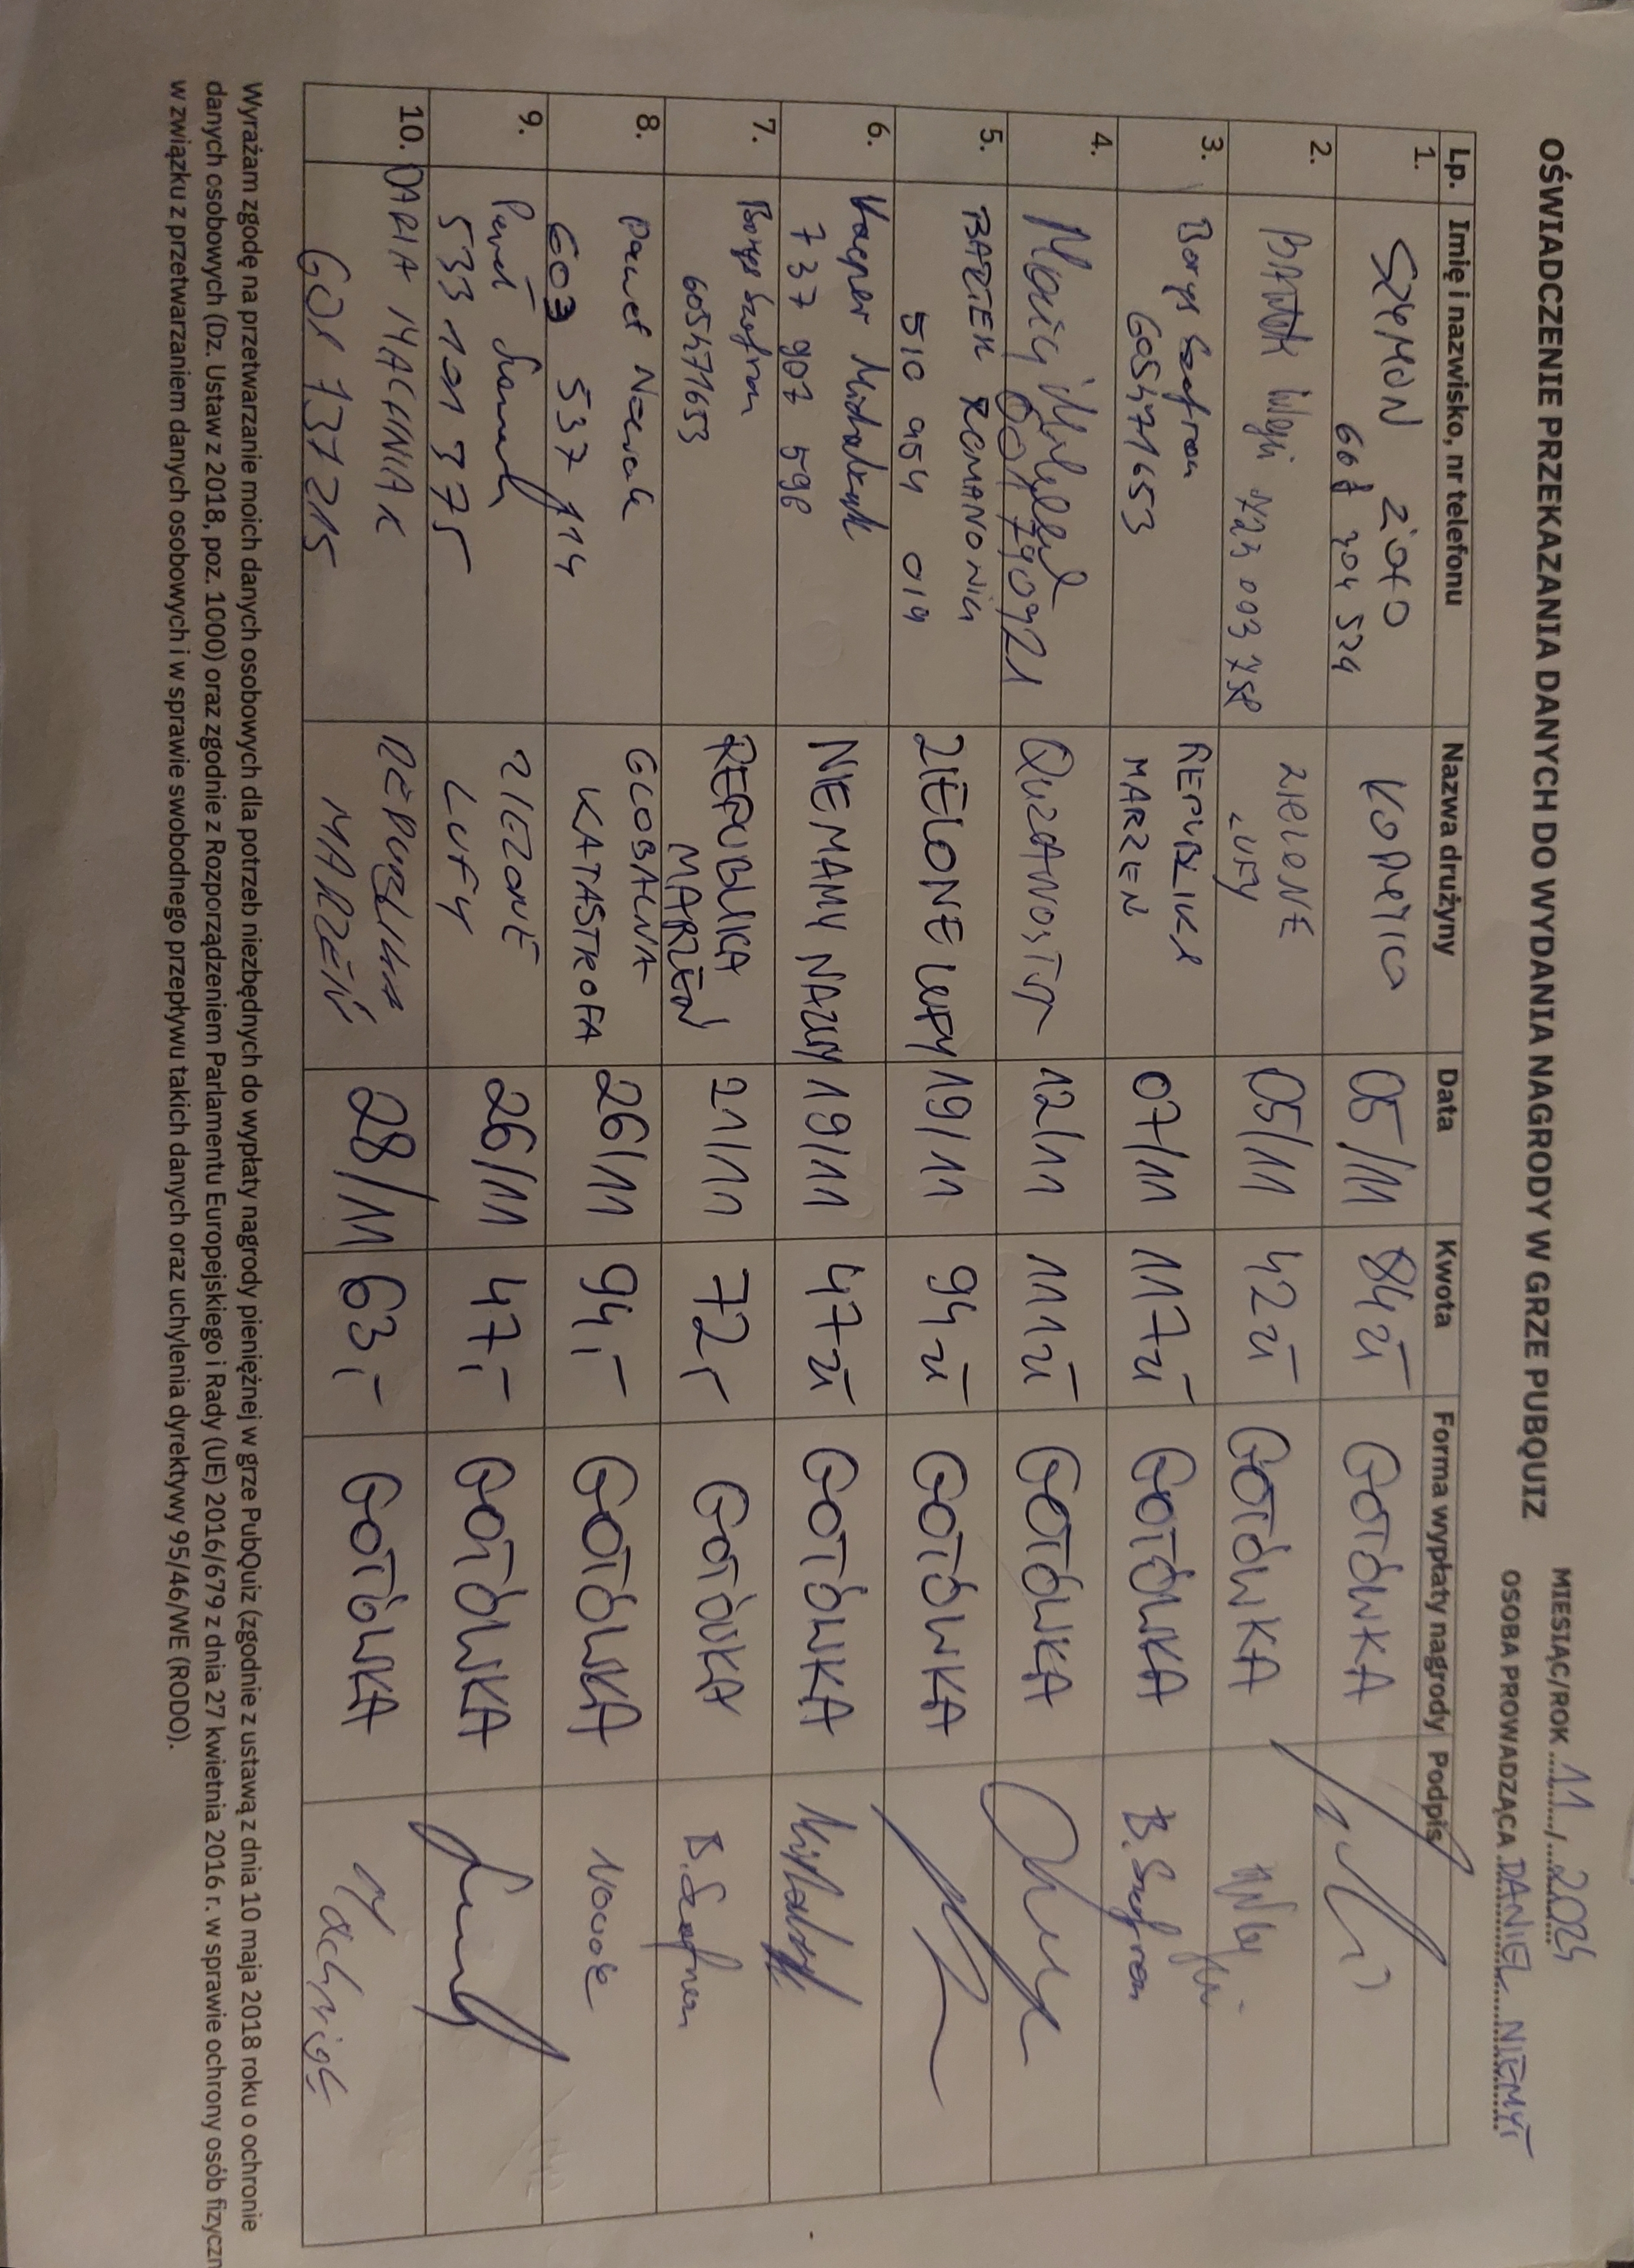 OŚWIADCZENIE PRZEKAZANIA DANYCH DO WYDANIA NAGRODY W GRZE PUBQUIZ
MIESIĄC/ROK 11/2024
OSOBA PROWADZĄCA DANIEL NIEMYT
Lp. Imię i nazwisko, nr telefonu Nazwa drużyny Data Kwota Forma wypłaty nagrody Podpis
1. SZYMON 05/11 84 zł GOTÓWKA
704 524
2. 003 ZIELONE 05/11 42 zł GOTÓWKA
LUFY
3. Borys Szafran REPUBLIKA 07/11 117 zł GOTÓWKA B. Szafran
605471653 MARZEN
4. 12/11 111 zł GOTÓWKA
5. ROMANOWICZ ZIELONE LUFY 19/11 94 zł GOTÓWKA
510 954 019
6. Kacper NIEMAMY NAZWY 19/11 47 zł GOTÓWKA
737 907 598
7. Borys Szafran REPUBLIKA 21/11 72,- GOTÓWKA B. Szafran
605471653 MARZEŃ
8. Paweł Nowak GLOBALNA 26/11 94,- GOTÓWKA Nowak
603 537 114 KATASTROFA
9. Paweł ZIELONE 26/11 47,- GOTÓWKA
533 101 375 LUFY
10. DARIA MACHNIAK REPUBLIKA 28/11 63,- GOTÓWKA Machniak
601 137 215 MARZEŃ
Wyrażam zgodę na przetwarzanie moich danych osobowych dla potrzeb niezbędnych do wypłaty nagrody pieniężnej w grze PubQuiz (zgodnie z ustawą z dnia 10 maja 2018 roku o ochronie
danych osobowych (Dz. Ustaw z 2018, poz. 1000) oraz zgodnie z Rozporządzeniem Parlamentu Europejskiego i Rady (UE) 2016/679 z dnia 27 kwietnia 2016 r. w sprawie ochrony osób fizyczn
w związku z przetwarzaniem danych osobowych i w sprawie swobodnego przepływu takich danych oraz uchylenia dyrektywy 95/46/WE (RODO).